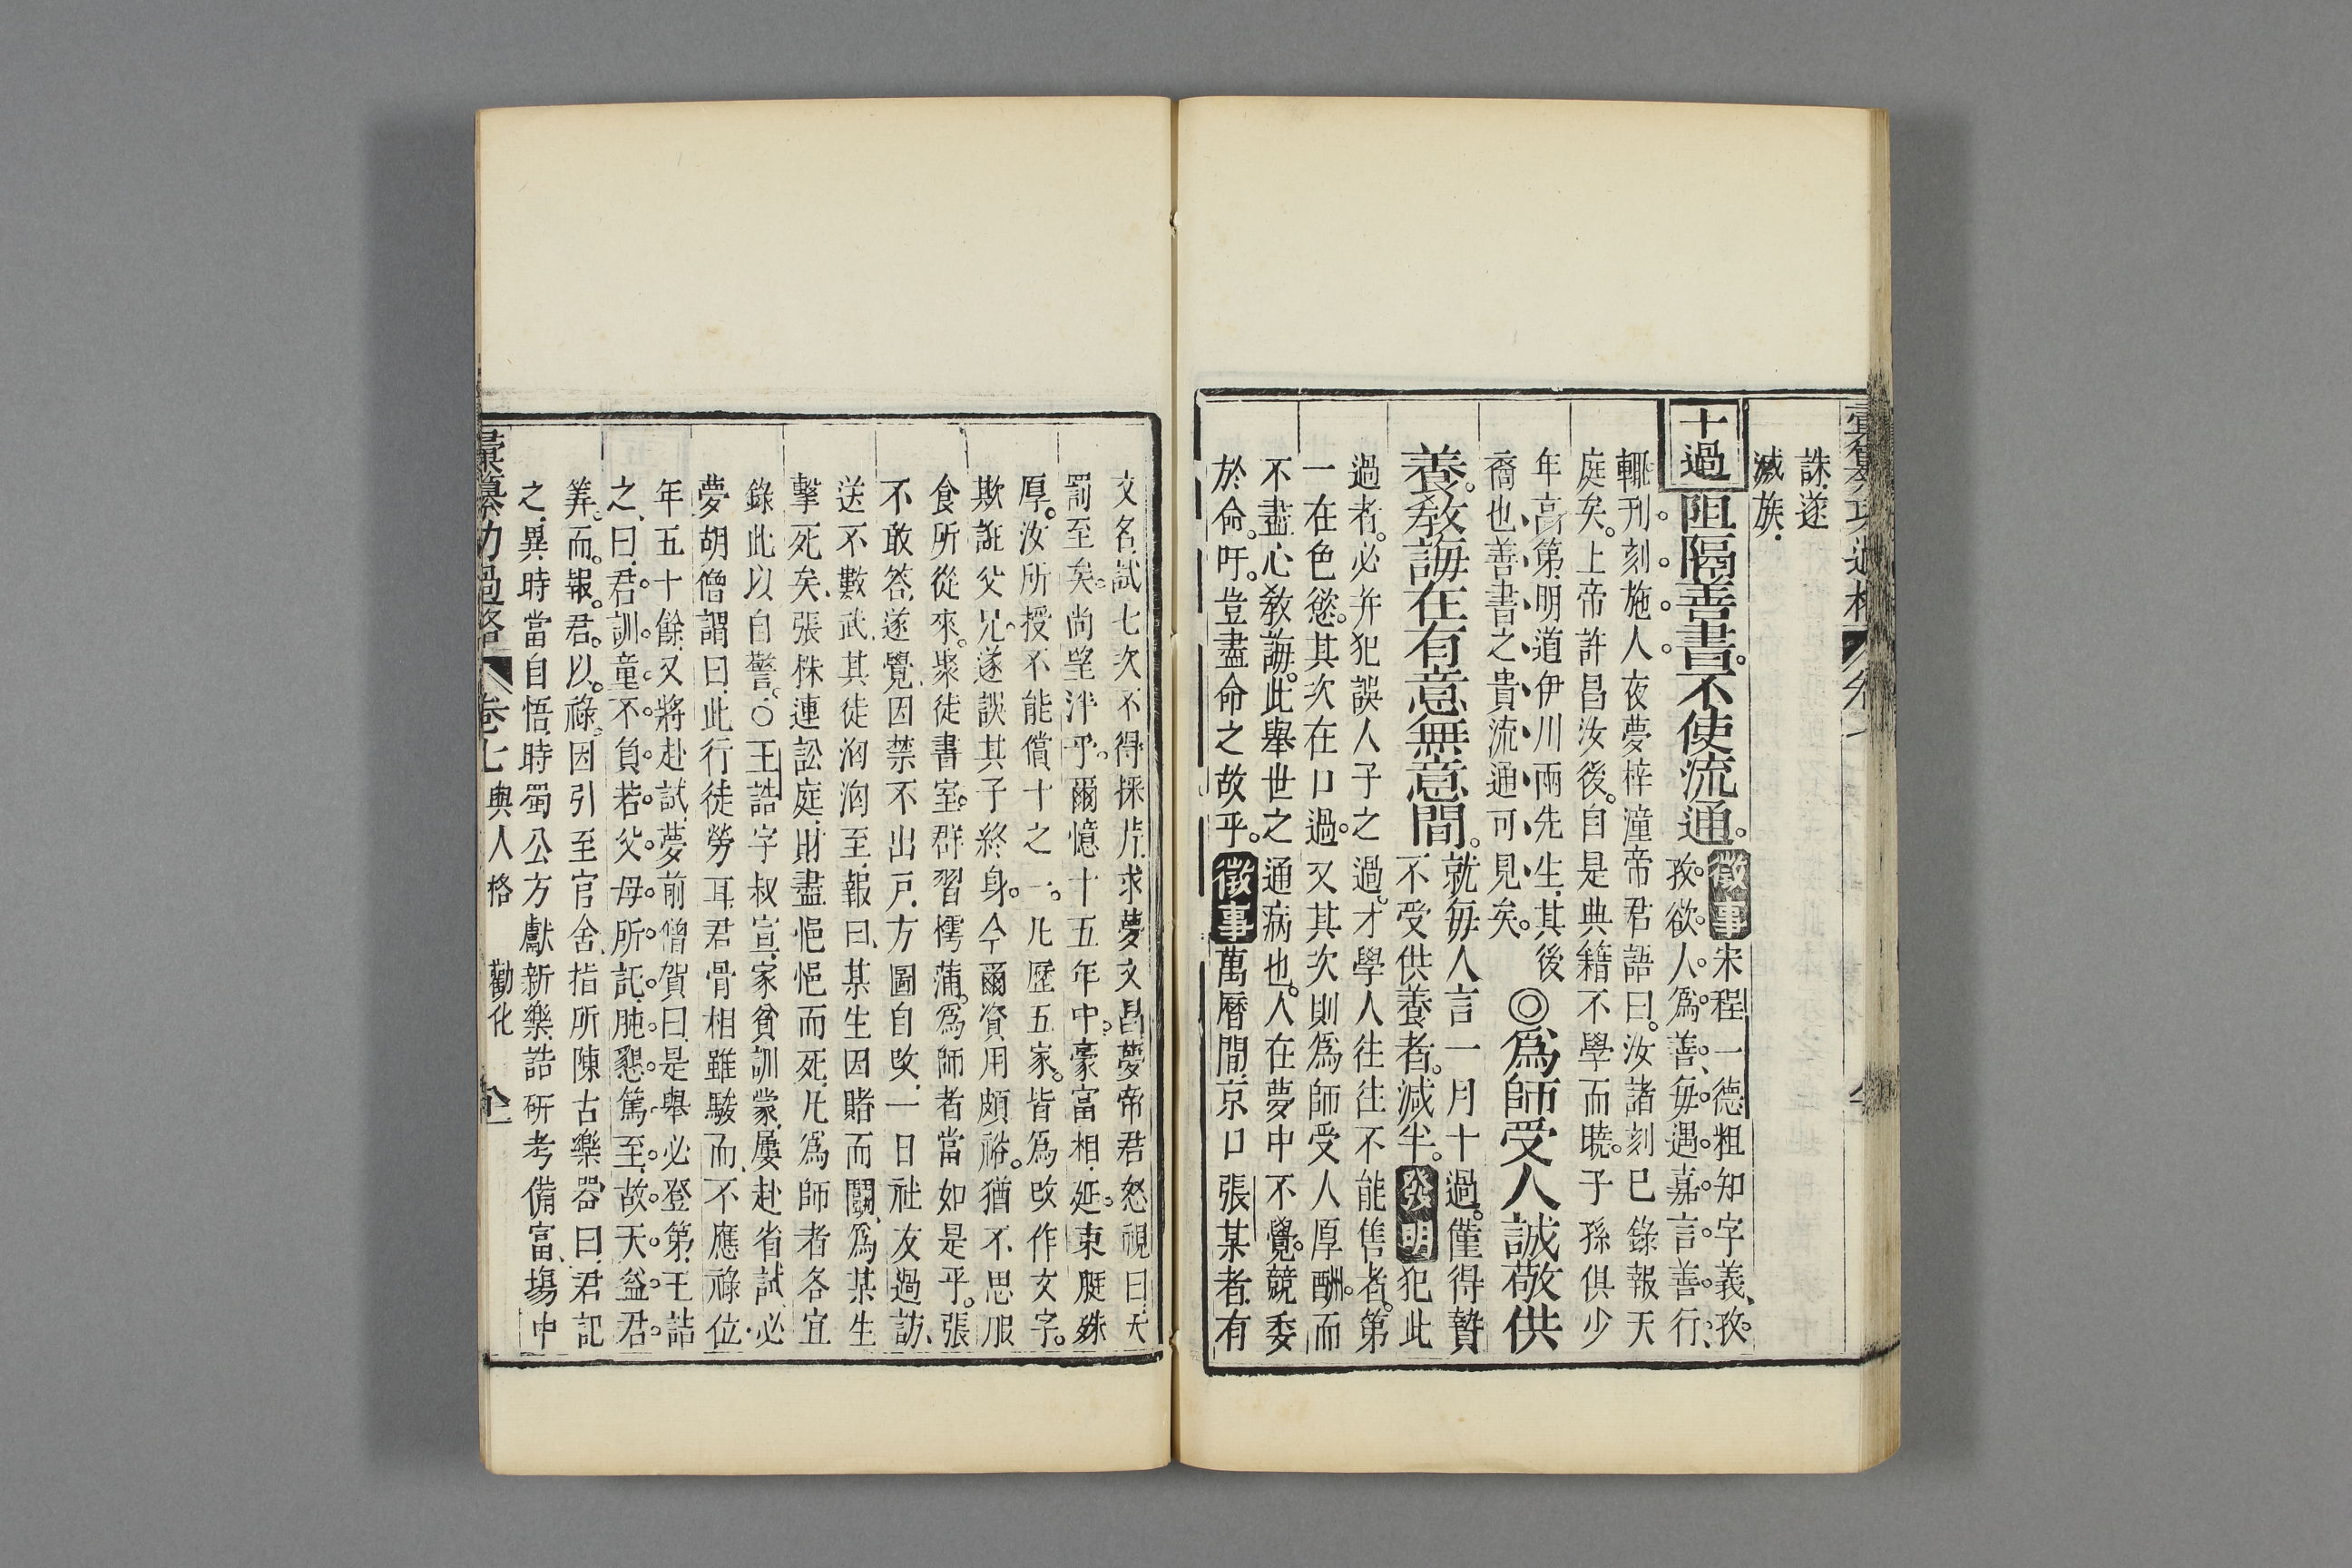 誅、遂
滅族、
十過
阻隔善書。不使流通。
徵事
宋程一德粗知字義、孜。
孜。欲。人。爲。善、每。遇。嘉。言。善。行、
輙。刊。刻。施。人。夜夢梓潼帝君語曰。汝諸刻巳錄報天
庭矣。上帝許昌汝後。自是典籍不學而曉。子孫俱少
年高第、明道伊川兩先生、其後
裔也、善書之貴流通可見矣。
◎爲師受人誠敬供
養。教誨在有意無意間。
就每人言一月十過。僅得贄
不受供養者。減半。
發明
犯此
過者。必幷犯誤人子之過。才學人往往不能售者。第
一在色慾。其次在口過。又其次則爲師受人厚酬。而
不盡心教誨。此舉世之通病也。人在夢中不覺。競委
於命。吁。豈盡命之故乎。
徵事
萬曆間、京口張某者、有
文名、試七次不得採片、求夢文昌、夢帝君怒視曰、天
罰至矣。尚望泮乎。爾憶十五年中。豪富相延。束脡殊
厚。汝所授不能償十之一。凡歷五家。皆爲改作文字。
欺誑父兄。遂誤其子終身。今爾資用頗裕。猶不思服
食所從來。聚徒書室。群習樗蒲。爲師者當如是乎。張
不敢答、遂覺、因禁不出戸、方圖自改、一日社友過訪、
送不數武、其徒洶洶至、報曰、某生因賭而鬭、爲某生
擊死矣、張株連訟庭、財盡悒悒而死、凡爲師者各宜
錄此以自警。○王誥字叔宣、家貧訓蒙、屢赴省試、必
夢胡僧謂曰、此行徒勞耳、君骨相雖駿、而不應祿位、
年五十餘、又將赴試、夢前僧賀曰、是舉必登第、王詰
之、曰、君。訓。童。不。負。若。父。母。所。託。肫。懇。篤。至。故。天。益。君。
筭。而。報。君。以。祿。因引至官舍、指所陳古樂器曰、君記
之、異時當自悟、時蜀公方獻新樂、誥研考備富、塲中
彙纂功過格
卷七
與人格
勸化